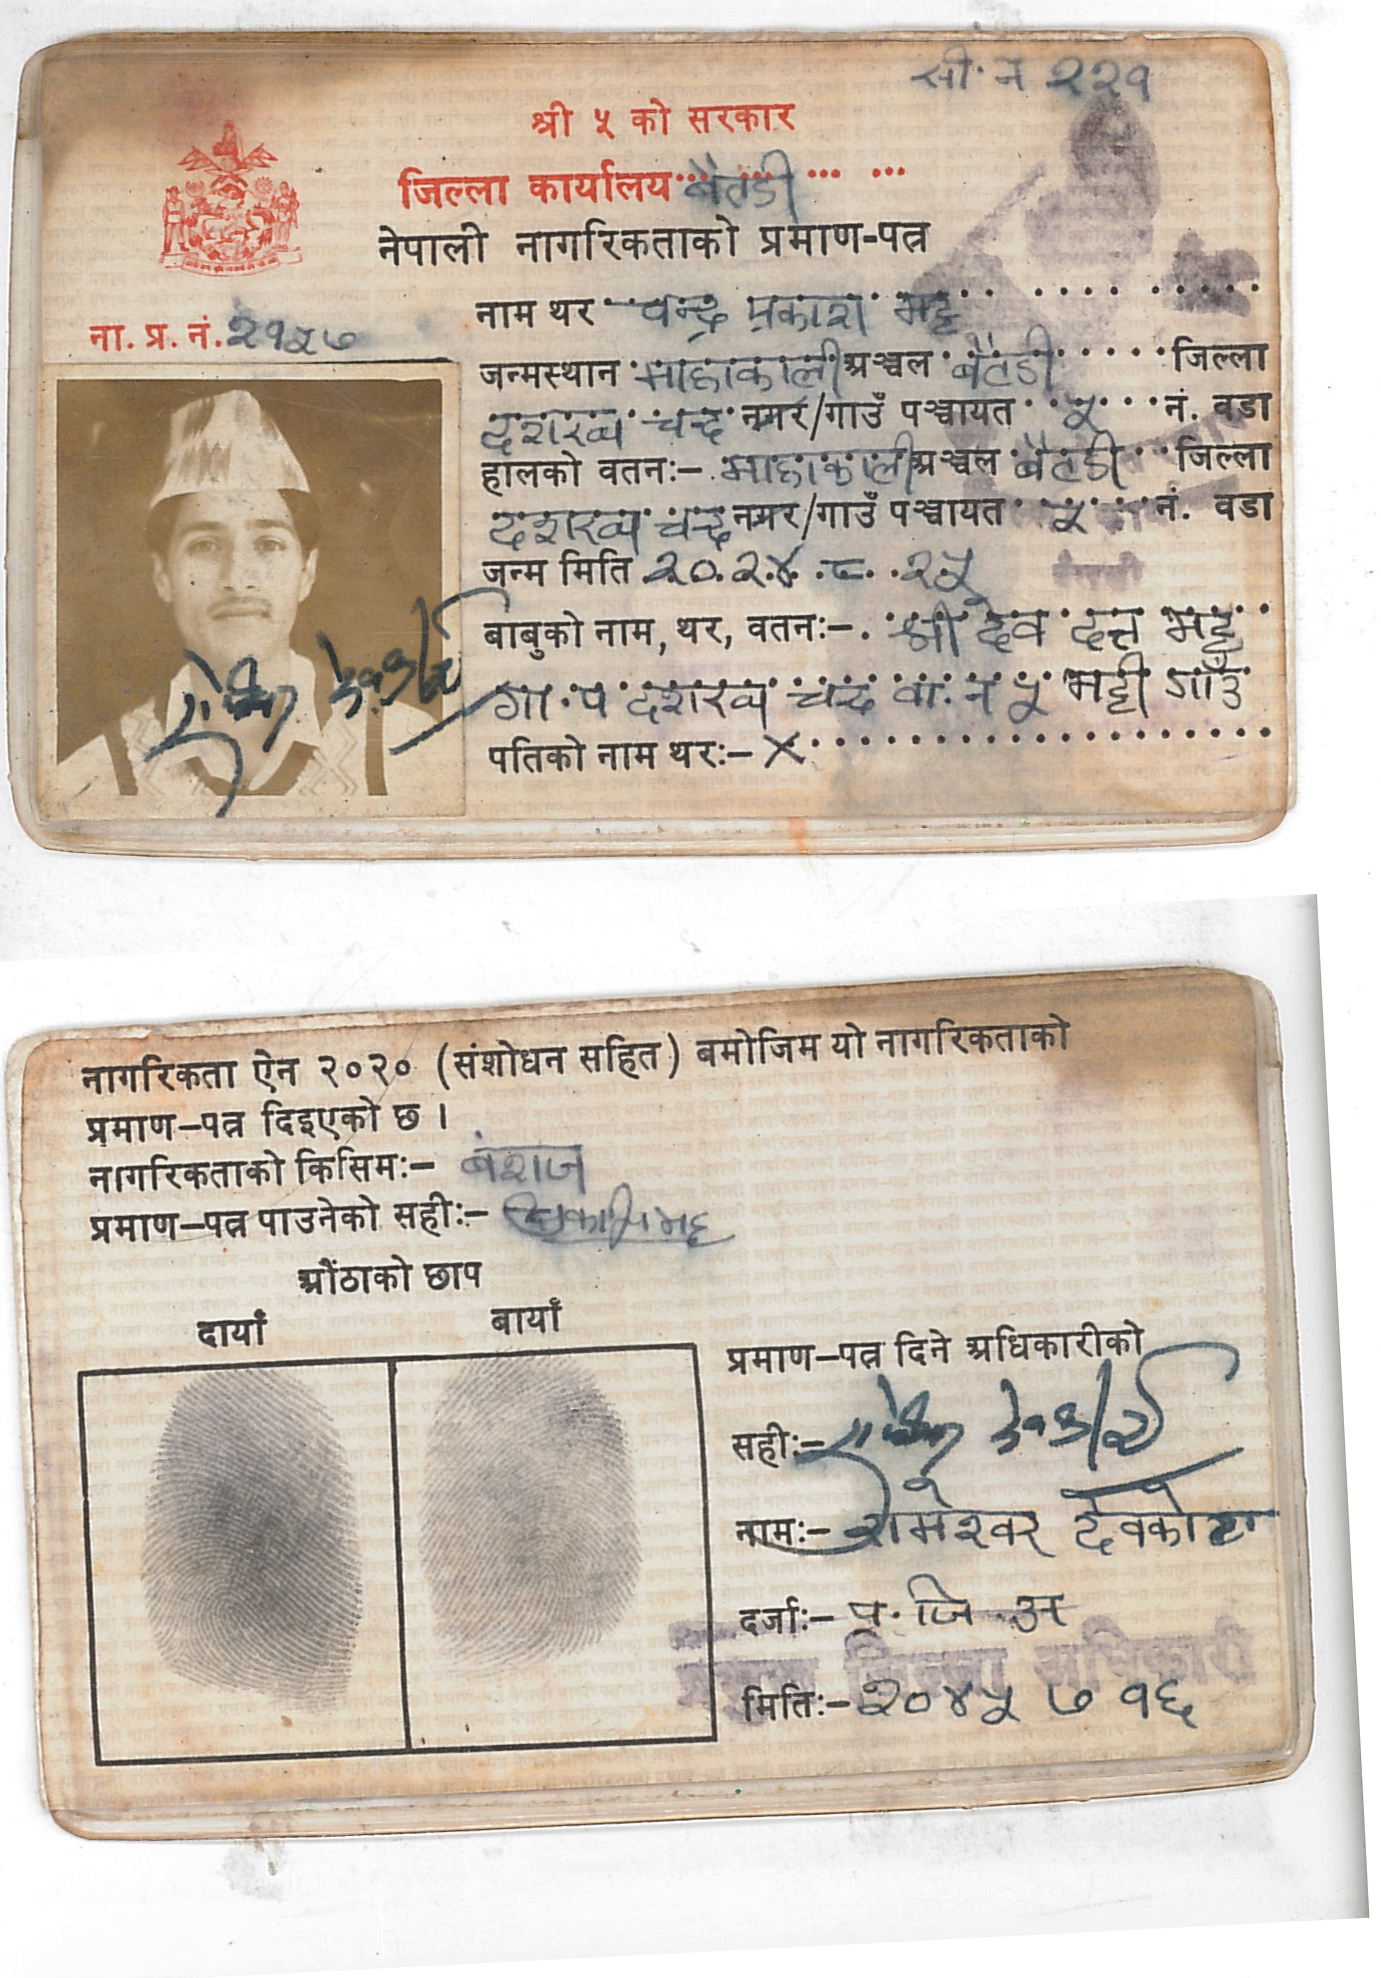 सी. नं २२१
श्री ५ को सरकार
जिल्ला कार्यालय बैतडी
नेपाली नागरिकताको प्रमाण-पत्र
ना. प्र. नं. २१५७
नाम थर चन्द्र प्रकाश भट्ट
जन्मस्थान माहाकाली अञ्चल बैतडी जिल्ला
दशरथ चन्द नगर/गाउँ पञ्चायत ५ नं. वडा
हालको वतनः- माहाकाली अञ्चल बैतडी जिल्ला
दशरथ चन्द नगर/गाउँ पञ्चायत ५ नं. वडा
जन्म मिति २०२४.८.२५
बाबुको नाम, थर, वतनः- श्री देव दत्त भट्ट
गा.प दशरथ चन्द वा. नं ५ भट्टी गाउँ
पतिको नाम थरः- X
नागरिकता ऐन २०२० (संशोधन सहित) बमोजिम यो नागरिकताको
प्रमाण-पत्र दिइएको छ ।
नागरिकताको किसिमः- बंशज
प्रमाण-पत्र पाउनेको सहीः-
औंठाको छाप
दायाँ बायाँ
प्रमाण-पत्र दिने अधिकारीको
सहीः-
नामः- रामेश्वर देवकोटा
दर्जाः- प्र. जि. अ
प्रमुख जिल्ला अधिकारी
मितिः- २०४५ ७ १६